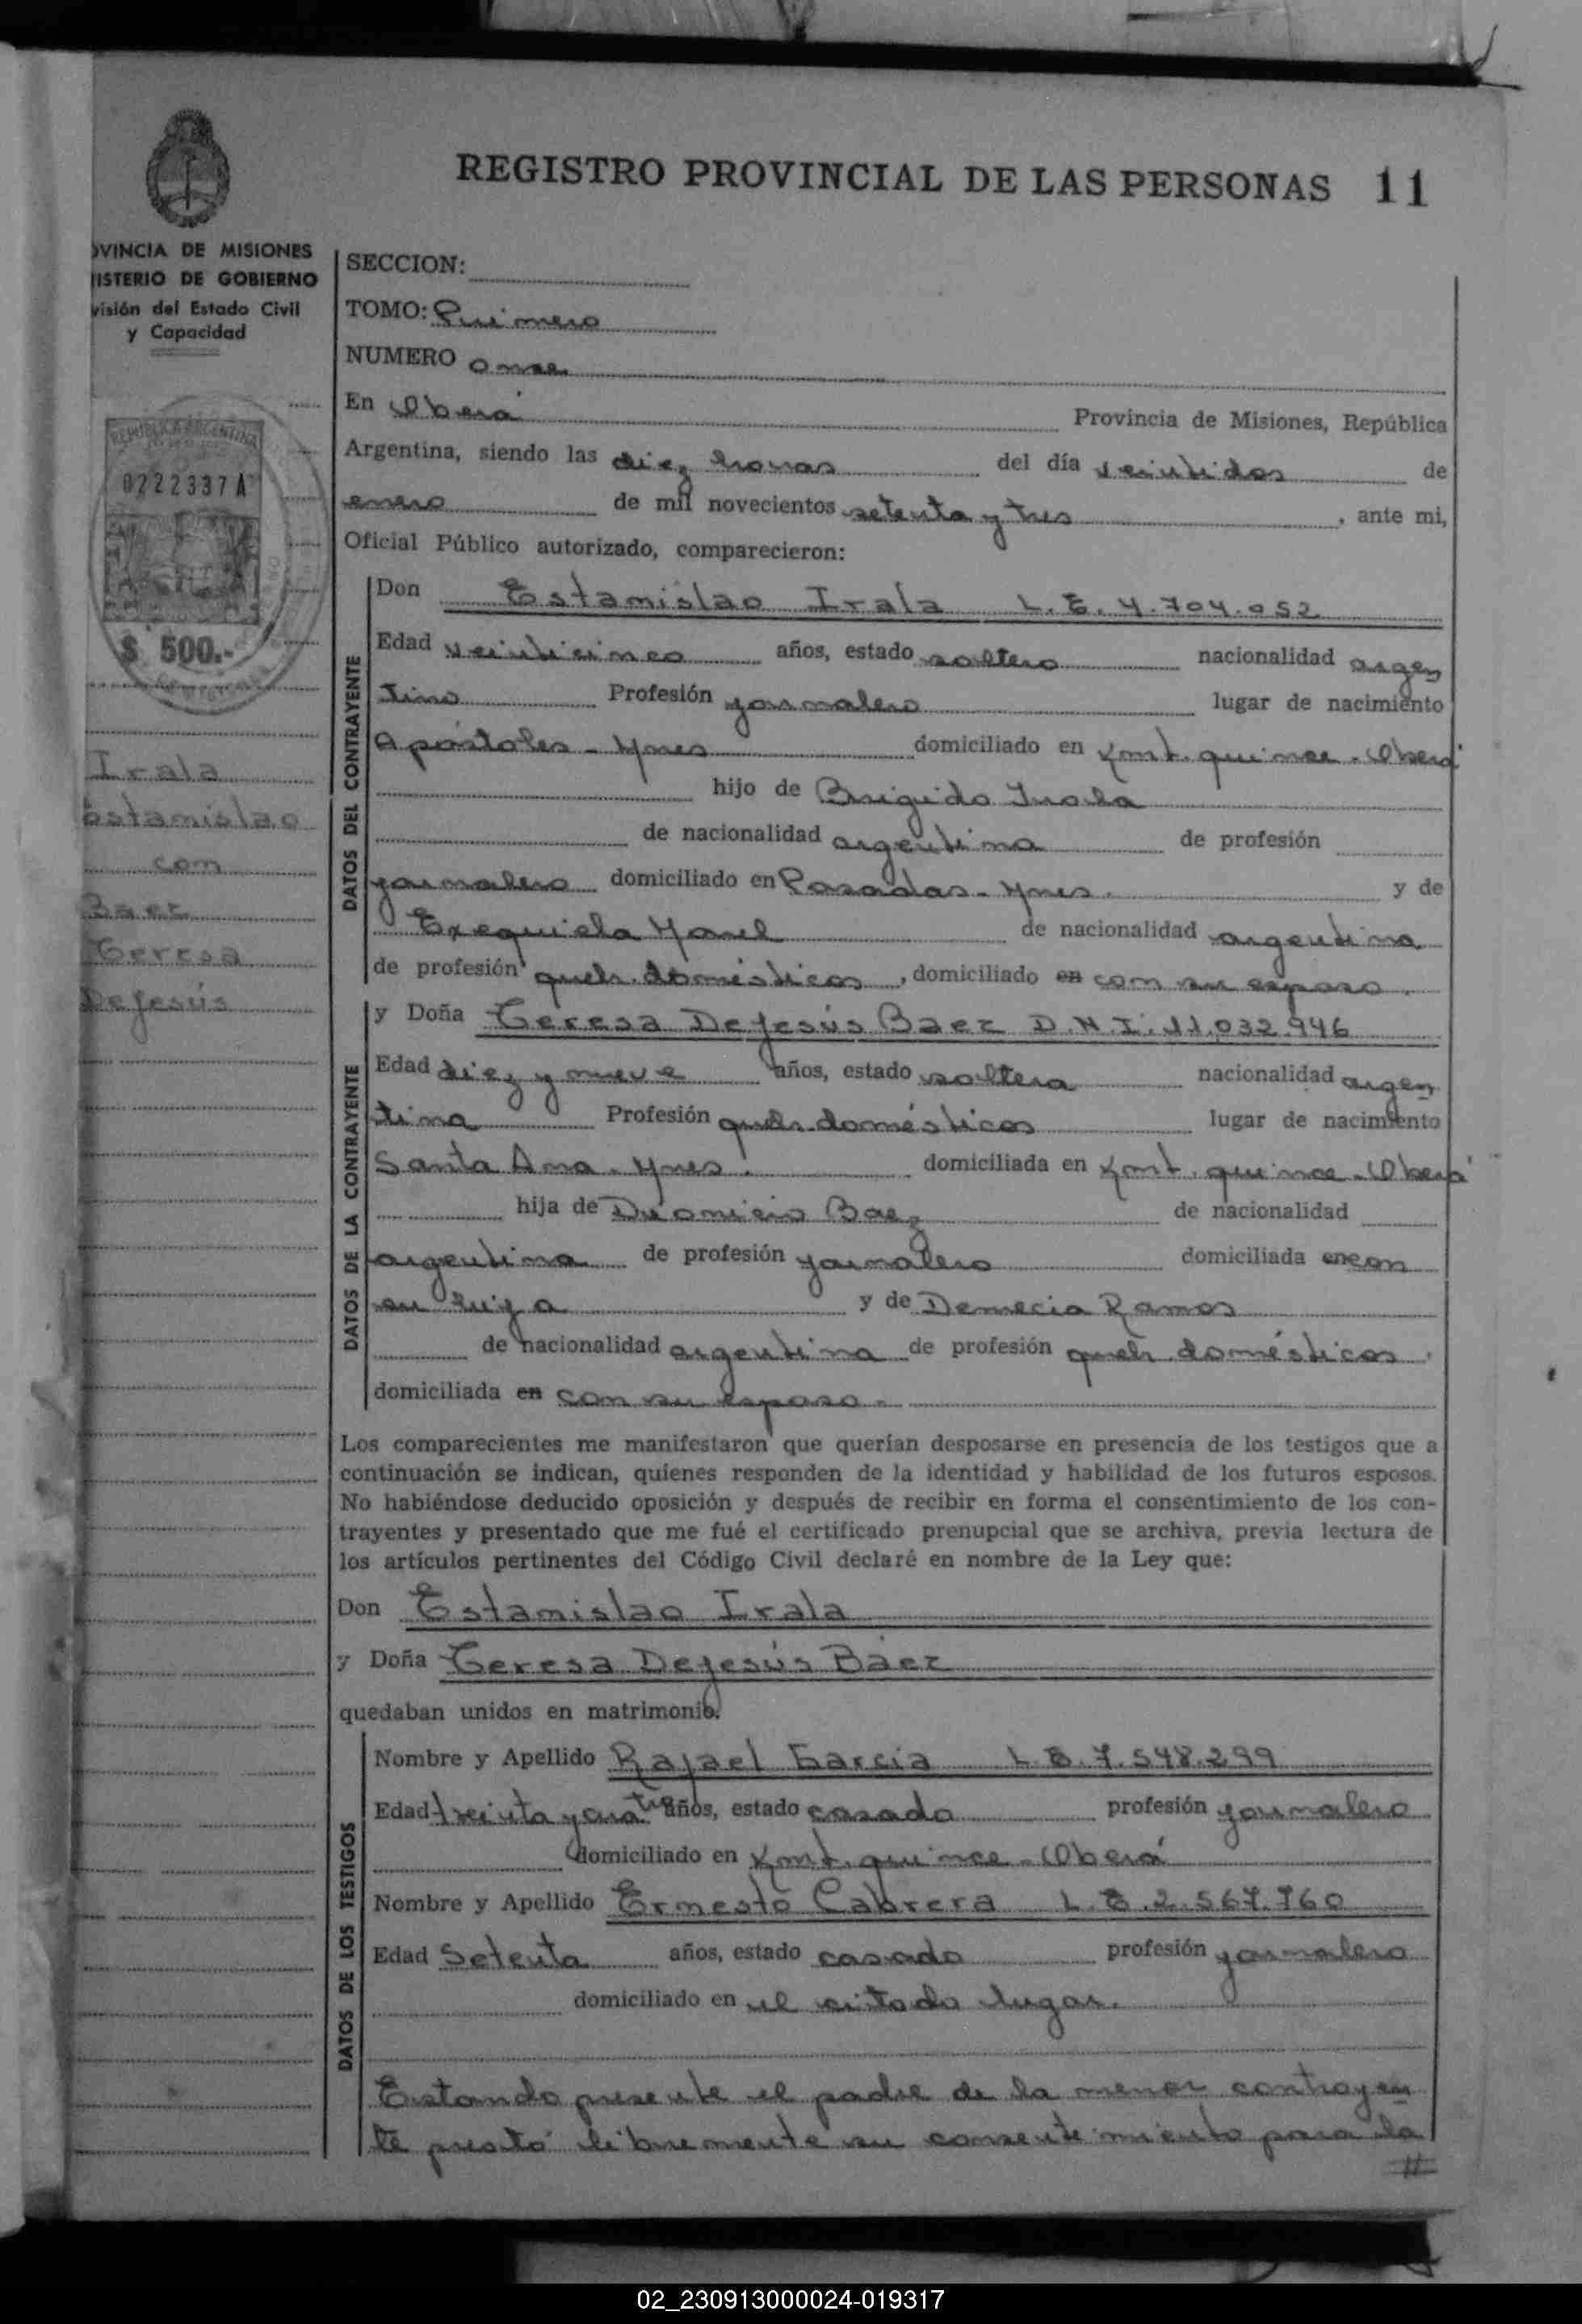 REGISTRO PROVINCIAL DE LAS PERSONAS 11
OVINCIA DE MISIONES
ISTERIO DE GOBIERNO
visión del Estado Civil
y Capacidad
REPUBLICA ARGENTINA
0222337 A
$ 500.-
Irala
Estamislao
con
Baez
Teresa
DeJesús
SECCION:
TOMO: Primero
NUMERO once
En Oberá Provincia de Misiones, República
Argentina, siendo las diez horas del día veintidos de
enero de mil novecientos setenta y tres, ante mi,
Oficial Público autorizado, comparecieron:
DATOS DEL CONTRAYENTE
Don Estamislao Irala L.E. 4.704.052
Edad veinticinco años, estado soltero nacionalidad argen
tino Profesión jornalero lugar de nacimiento
Apóstoles - Mnes domiciliado en Kmt. quince - Oberá
hijo de Brigido Irala
de nacionalidad argentina de profesión
jornalero domiciliado en Posadas - Mnes. y de
Exequiela de nacionalidad argentina
de profesión queh. domésticos, domiciliado en con su esposo.
DATOS DE LA CONTRAYENTE
y Doña Teresa DeJesús Baez D.N.I. 11.032.946
Edad diez y nueve años, estado soltera nacionalidad argen
tina Profesión queh. domésticos lugar de nacimiento
Santa Ana - Mnes. domiciliada en Kmt. quince - Oberá
hija de Baez de nacionalidad
argentina de profesión jornalero domiciliada en con
su hija y de Demecia Ramos
de nacionalidad argentina de profesión queh. domésticos.
domiciliada en con su esposo.
Los comparecientes me manifestaron que querían desposarse en presencia de los testigos que a
continuación se indican, quienes responden de la identidad y habilidad de los futuros esposos.
No habiéndose deducido oposición y después de recibir en forma el consentimiento de los con-
trayentes y presentado que me fué el certificado prenupcial que se archiva, previa lectura de
los artículos pertinentes del Código Civil declaré en nombre de la Ley que:
Don Estamislao Irala
y Doña Teresa DeJesús Báez
quedaban unidos en matrimonio.
DATOS DE LOS TESTIGOS
Nombre y Apellido Rafael Garcia L.E. 7.548.299
Edad treinta y cuatro años, estado casado profesión jornalero
domiciliado en Kmt. quince - Oberá
Nombre y Apellido Ernesto Cabrera L.E. 2.567.760
Edad Setenta años, estado casado profesión jornalero
domiciliado en el citado lugar.
Estando presente el padre de la menor contrayen
te prestó libremente su consentimiento para la
#
02_230913000024-019317